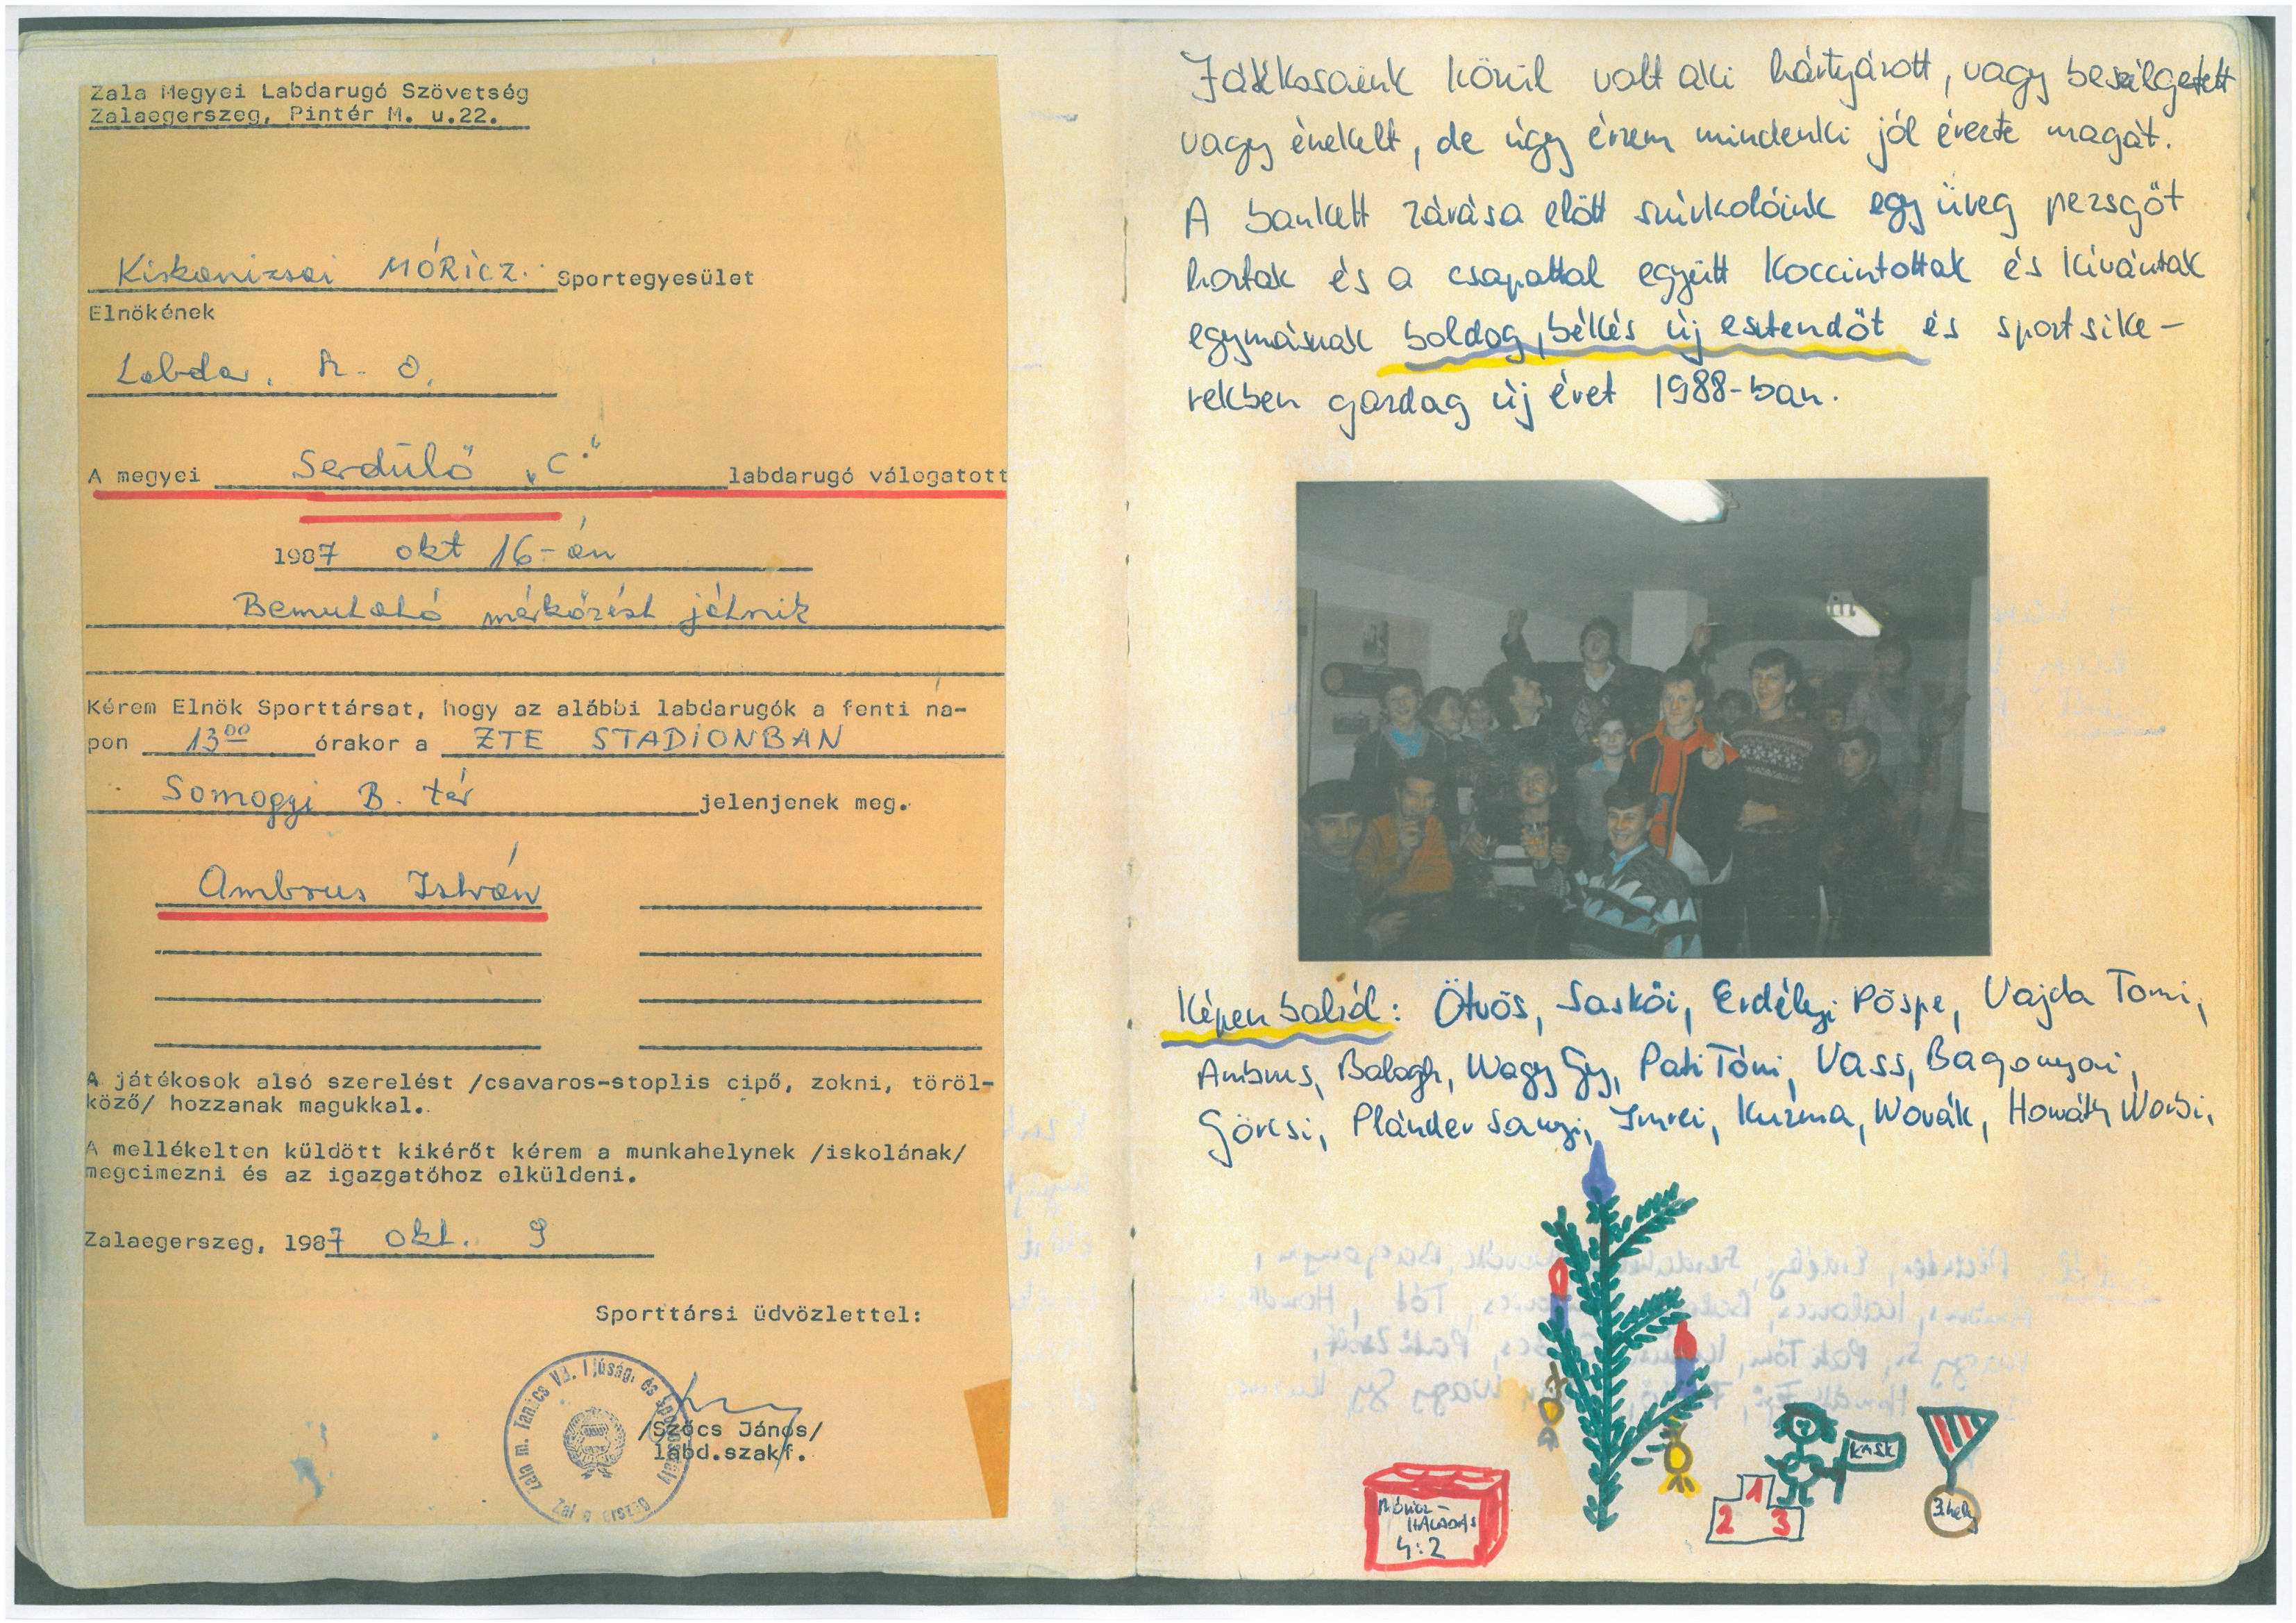 Zala Megyei Labdarugó Szövetség
Zalaegerszeg, Pintér M. u.22.
Kiskanizsai MÓRICZ. Sportegyesület
Elnökének
Labda. R. O.
A megyei Serdülő "C" labdarugó válogatott
1987 okt 16-án
Bemutató mérkőzést játszik
Kérem Elnök Sporttársat, hogy az alábbi labdarugók a fenti na-
pon 13 00 órakor a ZTE STADIONBAN
Somogyi B. tér jelenjenek meg.
Ambrus István
A játékosok alsó szerelést /csavaros-stoplis cipő, zokni, töröl-
köző/ hozzanak magukkal.
A mellékelten küldött kikérőt kérem a munkahelynek /iskolának/
megcimezni és az igazgatóhoz elküldeni.
Zalaegerszeg, 1987 okt. 9
Sporttársi üdvözlettel:
/Szőcs János/
labd.szakf.
Zala m. Tanács VB. Ifjúság. és Sport
Játékosaink közül volt aki kártyázott, vagy beszélgetett
vagy énekelt, de úgy érzem mindenki jól érezte magát.
A bankett zárása előtt szurkolóink egy üveg pezsgőt
hoztak és a csapattal együtt koccintottak és kívántak
egymásnak boldog, békés új esztendőt és sportsike-
rekben gazdag új évet 1988-ban.
Képen balról: Ötvös, Saskői, Erdélyi Pöspe, Vajda Tomi,
Ambrus, Balogh, Nagy Gy, Pati Tóni, Vass, Bagonyai,
Görcsi, Plánder Sanyi, Imrei, Kuzma, Novák, Horváth Norbi,
Móricz-
HALADÁS
4:2
1
2 3
KASK
3.hely